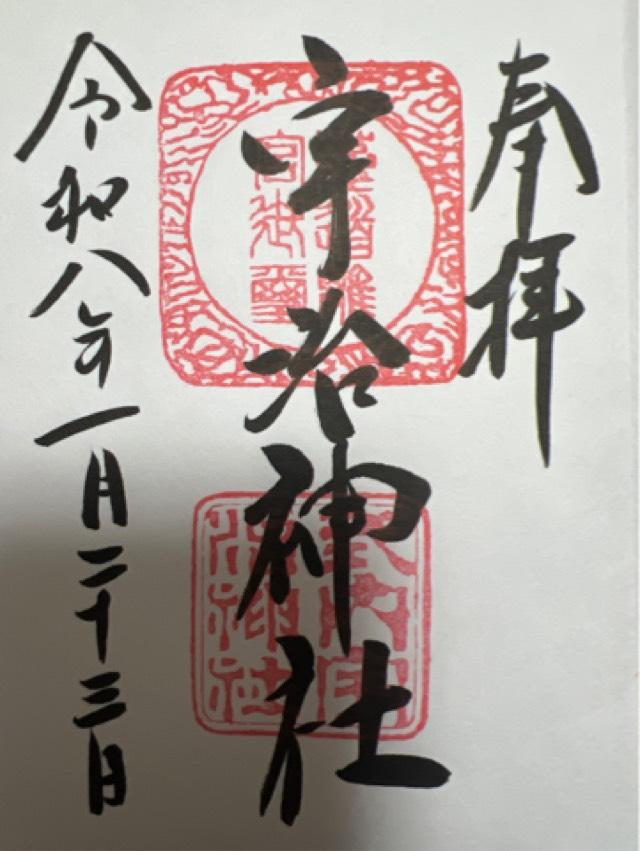 奉拝
宇治神社
令和八年一月二十三日